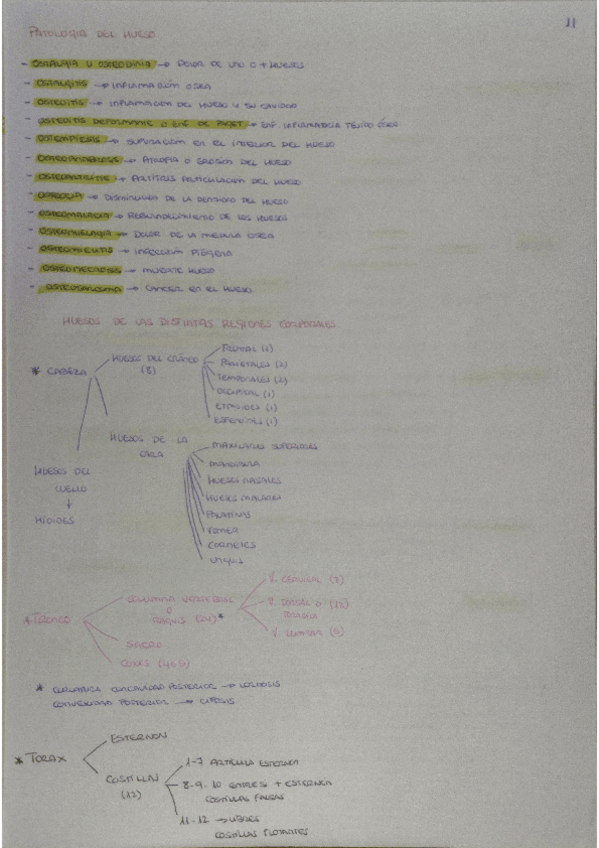 11
PATOLOGIA DEL HUESO
- OSTALGIA U OSTEODINIA → DOLOR DE UNO O + HUESOS
- OSTALGITIS → INFLAMACIÓN OSEA
- OSTEITIS → INFLAMACION DEL HUESO Y SU CAVIDAD
- OSTEITIS DEFORMANTE O ENF. DE PAGET → ENF. INFLAMATORIA TEJIDO ÓSEO
- OSTEMPIESIS → SUPURACION EN EL INTERIOR DEL HUESO
- → ATROFIA O EROSIÓN DEL HUESO
- OSTEOARTRITIS → ARTITRUS ARTICULACIÓN DEL HUESO
- → DISMINUCION DE LA DENSIDAD DEL HUESO
- OSTEOMALACIA → REBLANDECIMIENTO DE LOS HUESOS
- OSTEOMIELAGIA → DOLOR DE LA MEDULA OSEA
- OSTEOMIELITIS → INFECCION PIÓGENA
- OSTEONECROSIS → MUERTE HUESO
- OSTEOSARCOMA → CANCER EN EL HUESO
HUESOS DE LAS DISTINTAS REGIONES CORPORALES
* CABEZA
HUESOS DEL CRÁNEO
(8)
FRONTAL (1)
PARIETALES (2)
TEMPORALES (2)
OCCIPITAL (1)
ETMOIDES (1)
ESFENOIDES (1)
HUESOS DE LA
CARA
MAXILARES SUPERIORES
MANDIBULA
HUESOS NASALES
HUESOS MALARES
PALATINOS
VOMER
CORNETES
UNGUIS
HUESOS DEL
CUELLO
↓
HIOIDES
* TRONCO
COLUMNA VERTEBRAL
O
RAQUIS (24)*
V. CERVICAL (7)
V. DORSAL O (12)
TORACICA
V. LUMBAR (5)
SACRO
COXIS (4ó5)
* CURVATURA CONCAVIDAD POSTERIOR → LORDOSIS
CONVEXIDAD POSTERIOR → CIFOSIS
* TORAX
ESTERNON
COSTILLAS
(12)
1-7 ARTICULA ESTERNON
8-9-10 ENTRE SI + ESTERNON
COSTILLAS FALSAS
11-12 → LIBRES
COSTILLAS FLOTANTES